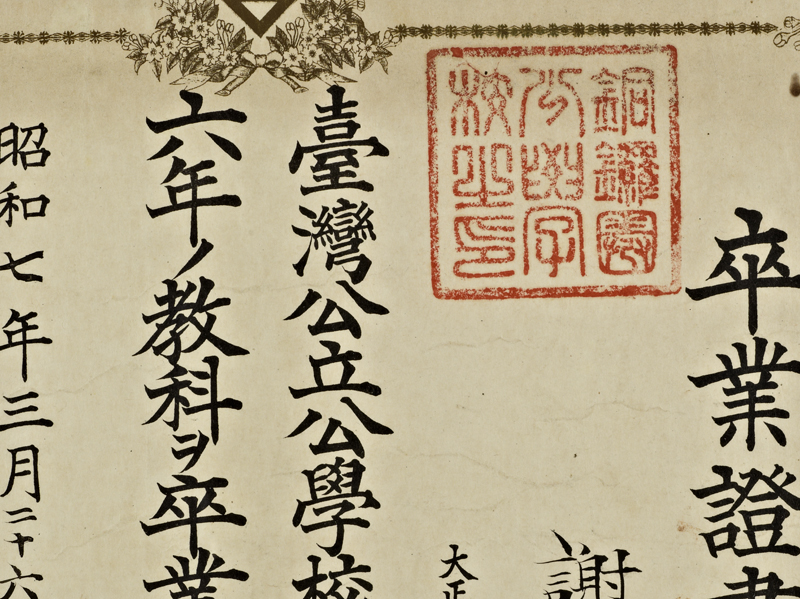 卒業證書
銅鑼圈
公學
校之印
謝
大正
臺灣公立公學校
六年ノ教科ヲ卒業
昭和七年三月二十六